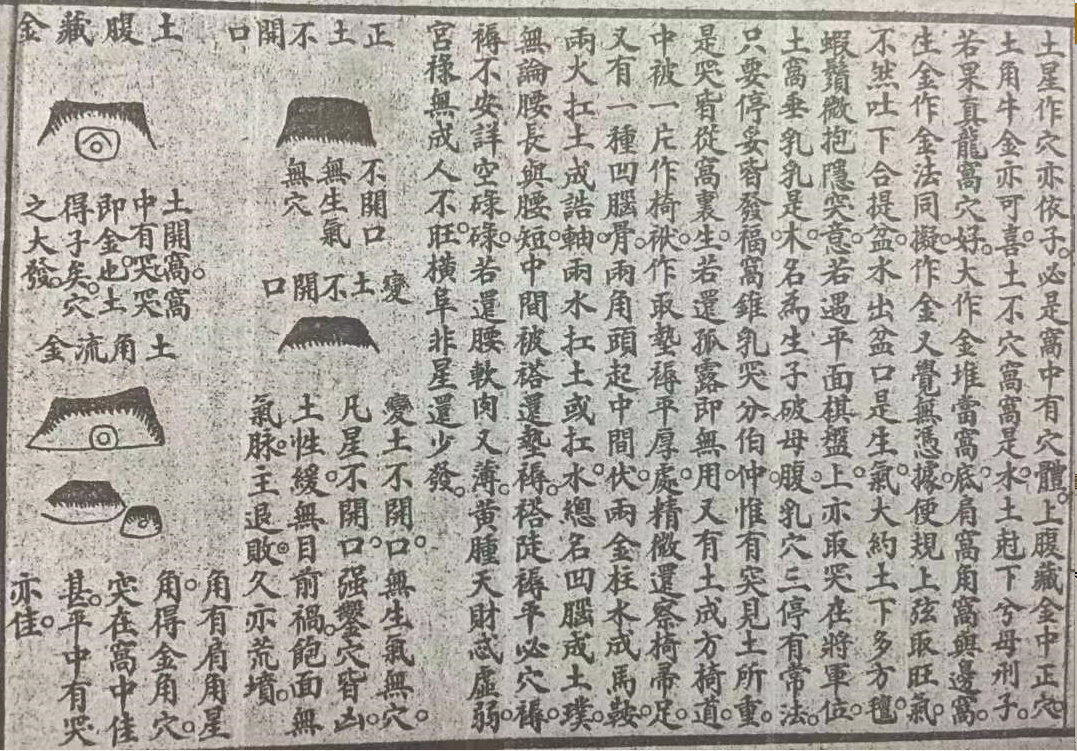 土星作穴亦依子。必是窩中有穴體。上腹藏金中正穴。
土角牛金亦可喜。土不穴窩窩是水。土尅下兮母刑子。
若果真龍窩穴好。大作金堆當窩底。肩窩角窩與邊窩。
生金作金法同擬。作金又覺無憑據。便規上弦取旺氣。
不然吐下合提盆。水出盆口是生氣。大約土下多方氊。
蝦鬚微抱隱突意。若遇平面棋盤上。亦取突在將軍位。
土窩垂乳乳是木。名為生子破母腹。乳穴三停有常法。
只要停妥皆發福。窩錐乳突分伯仲。惟有突見土所重。
是突皆從窩裏生。若還孤露即無用。又有土成方椅道。
中被一片作椅袱。作取墊褥平厚處。精微還察椅帚足。
又有一種凹腦骨。兩角頭起中間伏。兩金柱水成馬鞍。
兩火扛土成誥軸。兩水扛土或扛水。總名凹腦成土璞。
無論腰長與腰短。中間被褡還墊褥。褡陡褥平必穴褥。
褥不安詳空碌碌。若還腰軟肉又薄。黃腫天財惑虛弱。
宮祿無成人不旺。橫阜非星還少發。
正土不開口
不開口
無生氣
無穴
變土不開口
變土不開口。無生氣無穴。
凡星不開口。强鑿穴皆凶。
土性緩。無目前禍。飽面無
氣脉。主退敗。久亦荒墳。
土腹藏金
土開窩。窩
中有突。突
即金也。土
得子矣。穴
之大發。
土角流金
角有肩角星
角。得金角穴。
突在窩中佳
甚。平中有突
亦佳。